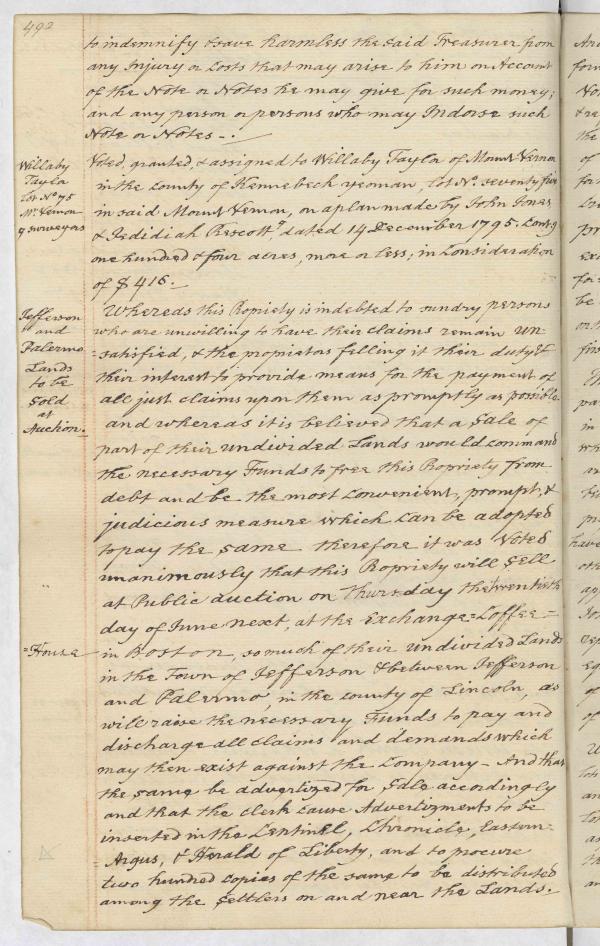 492
to indemnify & save harmless the said Treasurer from
any Injury or Costs that may arise to him on Account
of the Note or Notes he may give for such money;
and any person or persons who may Indorse such
Note or Notes -.
Willaby
Tayla
Lot No 75
Mt. Vernon
9 surveyors
Voted, granted, & assigned to Willaby Tayla of Mount Vernon
in the County of Kennebeck yeoman, Lot No. seventy five
in said Mount Vernon, on a plan made by John Jones
& Jedidiah Prescott, dated 14 December 1795. Contg.
one hundred & four acres, more or less; in Consideration
of $416.-
Jefferson
and
Palermo
Lands
to be
Sold
at
Auction.
Whereas this Propriety is indebted to sundry persons
who are unwilling to have their claims remain un
=satisfied, & the propriators felling it their duty &
their interest to provide means for the payment of
all just claims upon them as promptly as possible
and whereas it is believed that a Sale of
part of their undivided Lands would command
the necessary Funds to free this Propriety from
debt and be the most convenient, prompt, &
judicious measure which can be adopted
to pay the same therefore it was Voted
unanimously that this Propriety will Sell
at Public auction on Thursday the twentieth
day of June next, at the Exchange=Coffee=
=House in Boston, so much of their undivided Lands
in the Town of Jefferson & between Jefferson
and Palermo, in the county of Lincoln, as
will raise the necessary Funds to pay and
discharge all claims and demands which
may then exist against the Company - And that
the same be advertized for Sale accordingly
and that the Clerk cause Advertizments to be
inserted in the Centinel, Chronicle, Eastern-
=Argus, & Herald of Liberty, and to procure
two hundred copies of the same to be distributed
among the Settlers on and near the Lands.